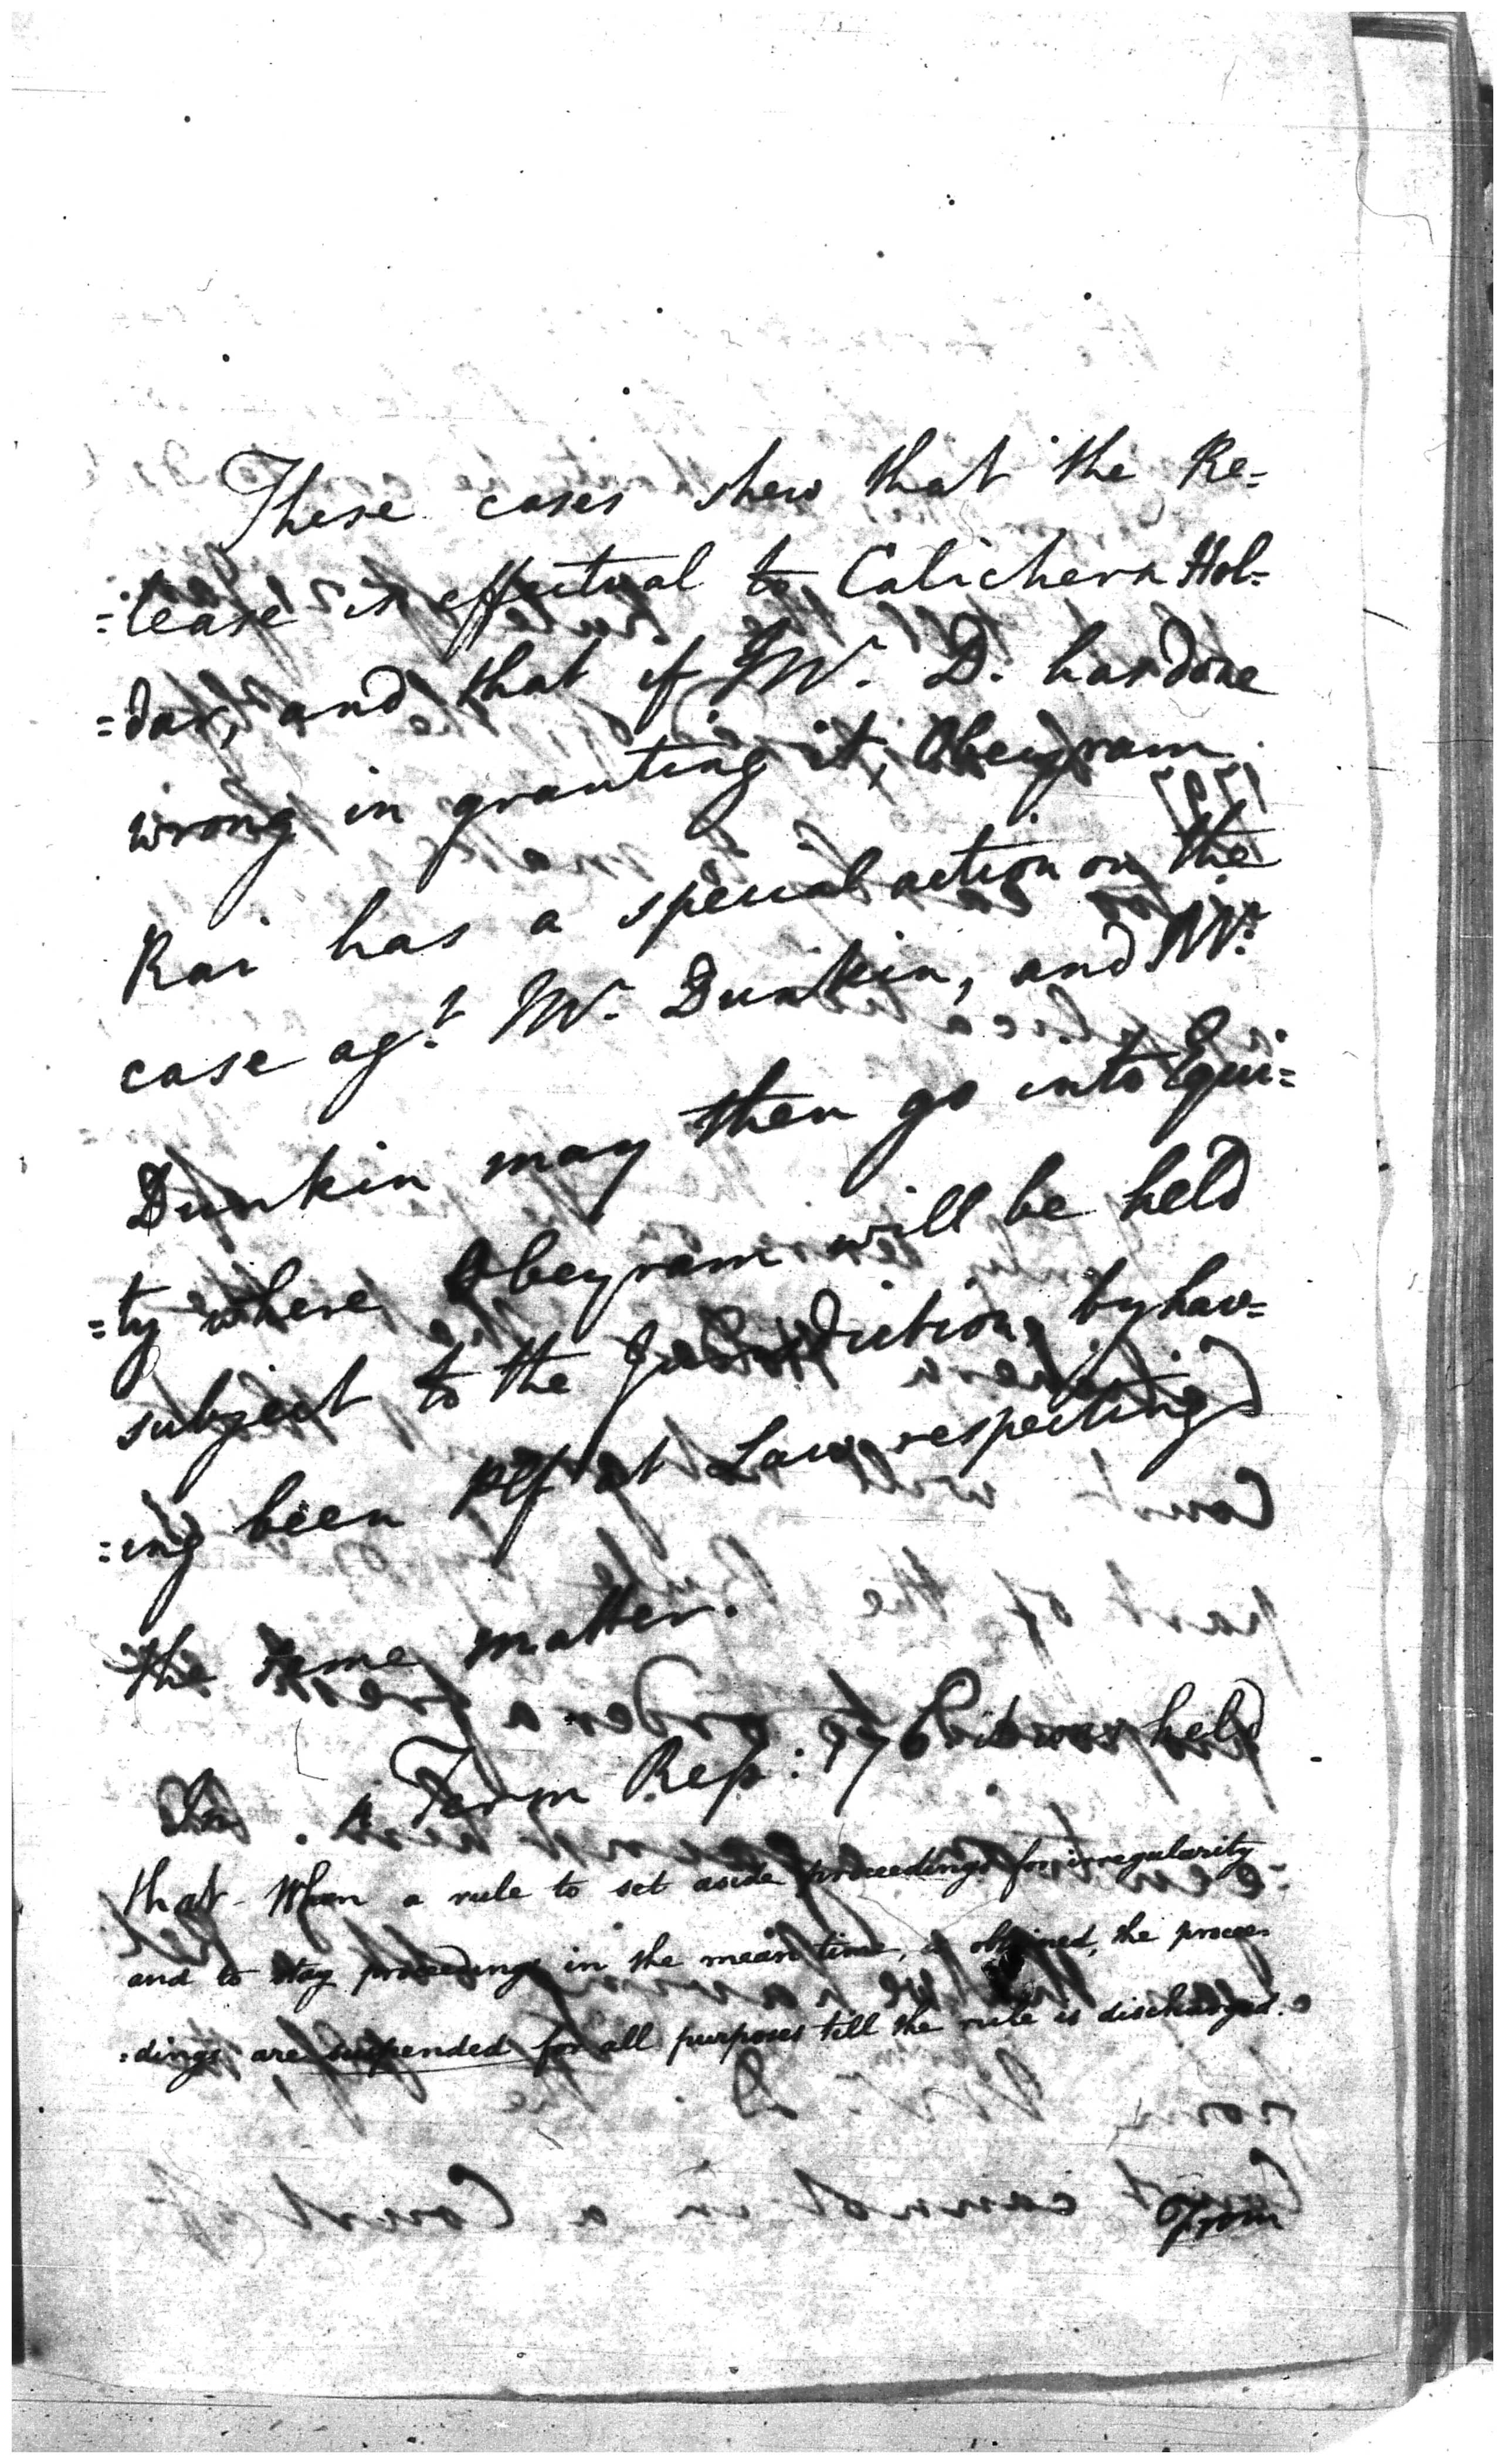 These cases shew that the Re-
=lease is effectual to Calichern Hol=
=dar, and that if Mr. D. has done
wrong in granting it, Obeyram
Rai has a special action on the
case agt. Mr. Dunkin, and Mr.
Dunkin may then go into Equi=
=ty where Obeyram will be held
subject to the Jurisdiction, by hav=
=ing been Plf at Law respecting
the same matter.
In 4 Term Rep: it was held
that - When a rule to set aside proceedings for irregularity
and to stay proceedings in the mean time, is obtained, the procee-
=dings are suspended for all purposes till the rule is discharged.
From